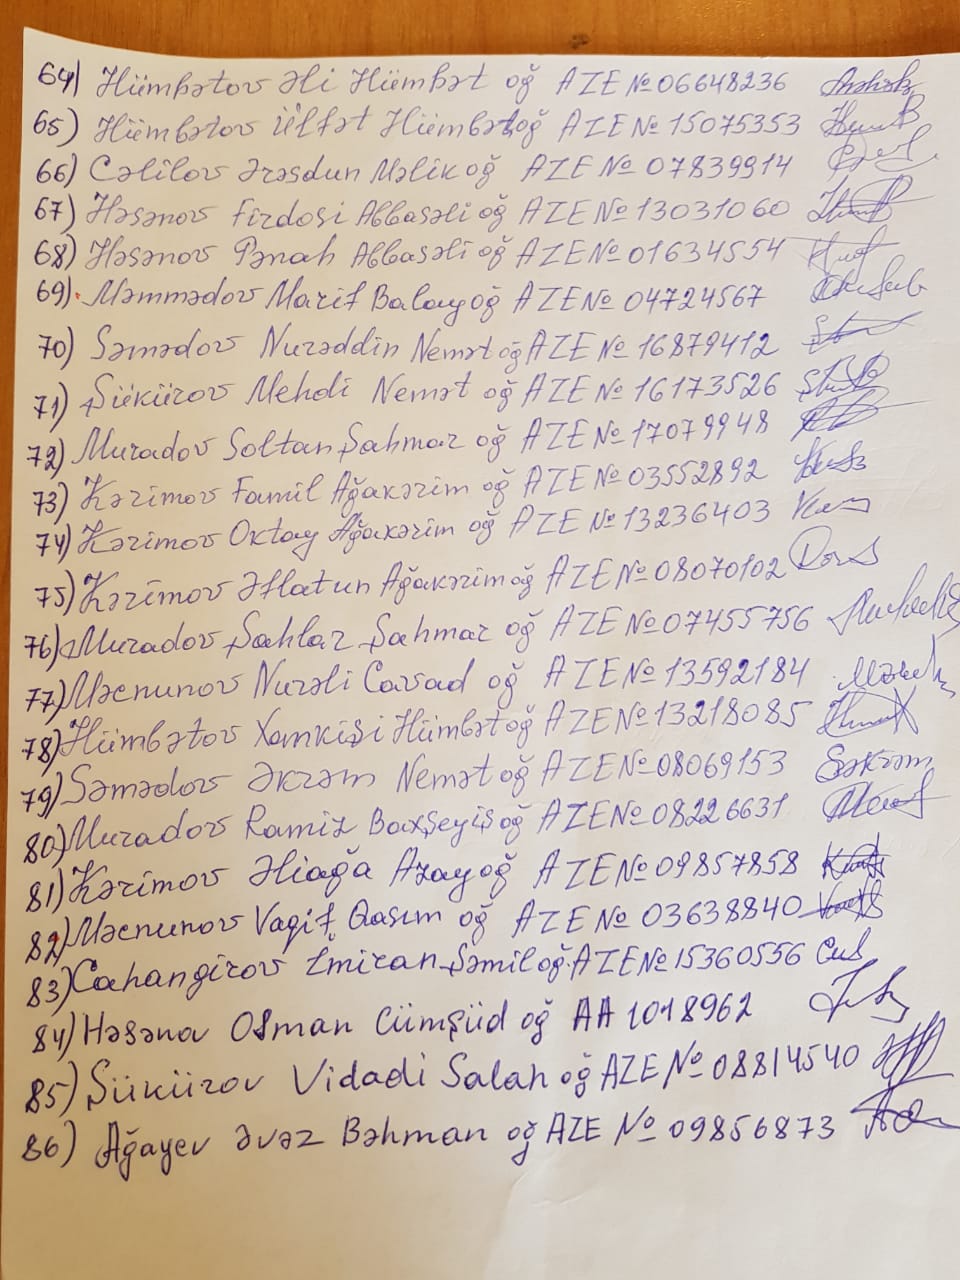 64) Hümbətov Əli Hümbət oğ AZE № 06648236
65) Hümbətov Ülfət Hümbətoğ AZE № 15075353
66) Cəlilov Ərəsdun Məlik oğ AZE № 07839914
67) Həsənov Firdosi Abbasəli oğ AZE № 13031060
68) Həsənov Pənah Abbasəli oğ AZE № 01634554
69) Məmmədov Marif Balay oğ AZE № 04724567
70) Səmədov Nurəddin Nemət oğ AZE № 16879412
71) Şükürov Mehdi Nemət oğ AZE № 16173526
72) Muradov Soltan Şahmar oğ AZE № 17079948
73) Kərimov Famil Ağakərim oğ AZE № 03552892
74) Kərimov Oktay Ağakərim oğ AZE № 13236403
75) Kərimov Əflatun Ağakərim oğ AZE № 08070102
76) Muradov Şahlar Şahmar oğ AZE № 07455756
77) Məcnunov Nurəli Cavad oğ AZE № 13592184
78) Hümbətov Xankişi Hümbət oğ AZE № 13218085
79) Səmədov Əkrəm Nemət oğ AZE № 08069153 Səkrəm
80) Muradov Ramiz Baxşeyiş oğ AZE № 08226631
81) Kərimov Əliağa Azay oğ AZE № 09857858
82) Məcnunov Vaqif Qasım oğ AZE № 03638840
83) Cahangirov İmiran Şəmil oğ. AZE № 15360556
84) Həsənov Osman Cümşüd oğ AA 1018962
85) Şükürov Vidadi Salah oğ AZE № 08814540
86) Ağayev Əvəz Bəhman oğ AZE № 09856873